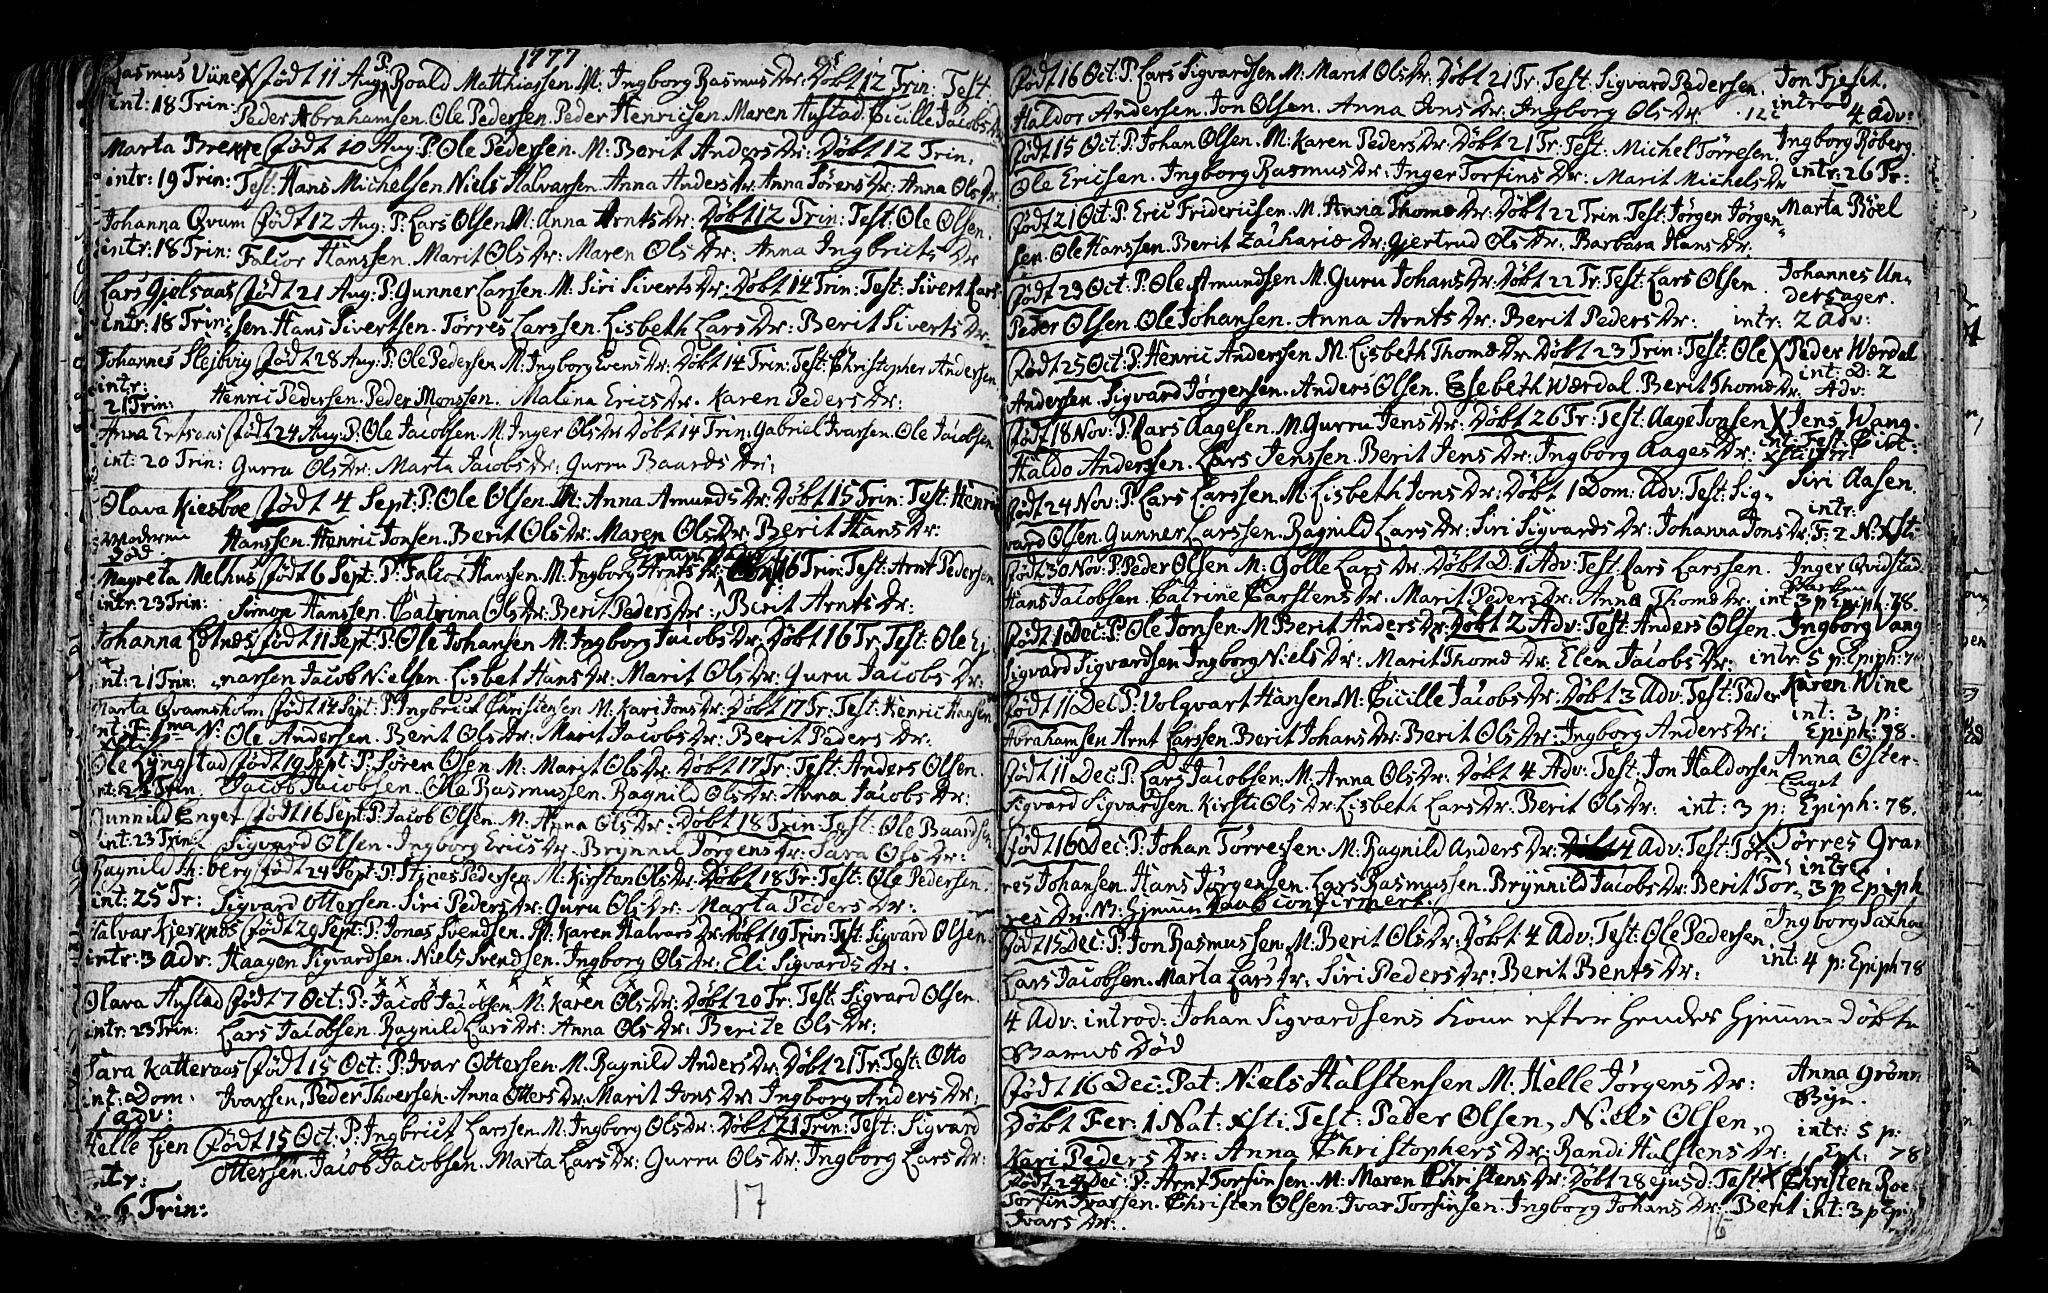 1777
Rasmus Viine Født 11 Aug: P. Roald Matthiassen. M: Ingborg Rasmus Dr: Døbt 12 Trin: Test.
int: 18 Trin: Peder Abrahamsen. Ole Pedersen. Peder Henricsen. Maren Austad. Cicille Jacobs Dr
Marta Født 10 Aug: P. Ole Pedersen. M: Berit Anders Dr: Døbt 12 Trin:
intr: 19 Trin: Test: Hans Michelsen. Niels Halvarsen. Anna Anders Dr. Anna Sørens Dr: Anna Ols Dr
Johanna Qvam Født 12 Aug: P: Lars Olsen M: Anna Arnts Dr: Døbt 12 Trin: Test: Ole Olsen.
intr: 18 Trin: Falior Hanssen. Marit Ols Dr: Maren Ols Dr: Anna Ingbricts Dr
Lars Gjelsaas Født 21 Aug: P: Gunner Larssen. M: Siri Siverts Dr: Døbt 14 Trin: Test: Sivert Lars
intr: 18 Trin: sen Hans Sivertsen. Tørres Larssen. Lisbeth Lars Dr: Berit Siverts Dr.
Johannes Slejbvig Født 28 Aug: P. Ole Pedersen. M: Ingborg Evens Dr: Døbt 14 Trin: Test: Christopher Andersen
intr:
21 Trin: Henric Pedersen. Peder Monssen. Malena Erics Dr. Karen Peders Dr:
Anna Født 24 Aug: P: Ole Jacobsen. M: Inger Ols Dr Døbt 14 Trin: Gabriel Ivarsen. Ole Jacobsen
int: 20 Trin: Gurru Ols Dr: Marta Jacobs Dr: Gurru Baards Dr:
Olava Kiesboe Født 4 Sept: P. Ole Olsen. M: Anna Amunds Dr: Døbt 15 Trin: Test: Henric
Moderen
død Hanssen. Henric Jonsen. Berit Ols Dr: Maren Ols Dr: Berit Hans Dr:
Magreta Melhus Født 6 Sept: P: Falior Hanssen. M: Ingborg Arnts Dr: 16 Trin: Test: Arnt Pedersen
intr: 23 Trin: Simon Hanssen. Catrina Ols Dr: Berit Peders Dr: Berit Arnts Dr:
Johanna Født 11 Sept: P: Ole Johansen M: Ingborg Jacobs Dr: Døbt 16 Tr: Test: Ole Ej
int: 21 Trin: narsen Jacob Nielsen. Lisbet Hans Dr: Marit Ols Dr: Guru Jacobs Dr:
Marta Qvamsholm Født 14 Sept: P: Ingbrict Christensen M: Kari Jons Dr: Døbt 17 Tr: Test: Henric Hansen
int: F: N: Ole Andersen. Berit Ols Dr: Marit Jacobs Dr: Berit Peders Dr:
Ole Lyngstad Født 19 Sept: P: Søren Olsen M: Marit Ols Dr: Døbt 17 Tr: Test: Anders Olsen.
int: Trin Jacob Jacobsen. Ole Rasmussen. Ragnild Ols Dr: Anna Jacobs Dr:
Gunnild Enget Født 16 Sept: P: Jacob Olsen. M: Anna Ols Dr: Døbt 18 Trin: Test: Ole Baardsen
int: 23 Trin: Sigvard Olsen. Ingborg Erics Dr. Brynnil Jørgens Dr: Sara Ols Dr:
Ragnild Th:berg Født 24 Sept: P: Pedersen. M: Kirstan Ols Dr: Døbt 18 Tr: Test: Ole Pedersen.
int: 25 Tr: Sigvard Ottersen. Siri Peders Dr: Guru Ols Dr: Marta Peders Dr:
Halvar Kjerknæs Født 29 Sept: P: Jonas Svendsen. M: Karen Halvars Dr: Døbt 19 Trin: Test: Sigvard Olsen
intr: 3 Adv: Haagen Sigvardsen. Niels Svendsen. Ingborg Ols Dr: Eli Sigvards Dr.
Olava Austad Født 7 Oct: P: Jacob Jacobsen M: Karen Ols Dr: Døbt 20 Tr: Test: Sigvard Olsen.
intr: 23 Trin: Lars Jacobsen. Ragnild Lars Dr: Anna Ols Dr: Berite Ols Dr:
Sara Katteraas Født 15 Oct: P: Ivar Ottersen. M. Ragnild Anders Dr: Døbt 21 Tr: Test: Otto
int: Dom.
Adv: Ivarsen, Peder Thoersen. Anna Otters Dr: Marit Jons Dr: Ingborg Anders Dr:
Helle Lien Født 15 Oct: P: Ingbrict Larssen. M: Ingborg Ols Dr: Døbt 21 Trin: Test: Sigvard
intr: Ottersen. Jacob Jacobsen. Marta Lars Dr: Gurru Ols Dr: Ingborg Lars Dr:
6 Trin:
17
Født 16 Oct: P: Lars Sigvardsen M: Marit Ols Dr: Døbt 21 Tr: Test: Sigvard Pedersen. Jon Fjeset.
Haldor Andersen. Jon Olsen. Anna Jons Dr: Ingborg Ols Dr introd 4 Adv:
Født 15 Oct: P: Johan Olsen. M: Karen Peders Dr: Døbt 21 Tr: Test: Michel Tørresen. Ingborg Røberg.
Ole Ericsen. Ingborg Rasmus Dr: Inger Torfins Dr: Marit Michels Dr intr: 26 Tr:
Født 21 Oct: P: Eric Fridericsen. M: Anna Thomæ Dr: Døbt 22 Trin: Test: Jørgen Jørgen Marta Røel
sen. Ole Hanssen. Berit Zachariæ Dr: Gjertrud Ols Dr: Barbara Hans Dr:
Født 23 Oct: P: Ole Amundsen M: Guru Johans Dr: Døbt 22 Tr: Test: Lars Olsen. Johannes Un-
dersager.
Peder Olsen. Ole Johansen. Anna Arnts Dr: Berit Peders Dr: intr: 2 Adv:
Født 25 Oct: P: Henric Anderssen. M. Lisbeth Thomæ Dr: Døbt 23 Trin: Test: Ole Peder Wærdal
Andersen. Sigvard Jørgensen. Anders Olsen. Elsebeth Wærdal. Berit Thomæ Dr. int: D: 2 Adv:
Født 18 Nov: P: Lars Aagesen. M: Gurru Jens Dr: Døbt 26 Tr: Test: Aage Jonsen Jens Wang.
Haldo Anderssen. Lars Jenssen. Berit Jens Dr: Ingborg Aages Dr: int: Fest:
Født 24 Nov: P: Lars Larssen. M. Lisbeth Jons Dr: Døbt 1 Dom: Adv: Test: Sig- Siri Aasen.
vard Olsen. Gunner Larssen. Ragnild Lars Dr: Siri Sigvards Dr: Johanna Jons Dr: intr: F: 2 N: Xsti
Født 30 Nov: P: Peder Olsen M: Golle Lars Dr: Døbt D: 1 Adv: Test: Lars Larssen. Inger Qvidstad
Hans Jacobsen. Catrine Carstens Dr: Marit Peders Dr: Anna Thomæ Dr. int 3 p Epiph: 78.
Født 1 Dec: P: Ole Jonsen. M: Berit Anders Dr: Døbt 2 Adv: Test: Anders Olsen. Ingborg Vang
Sigvard Sigvardsen Ingborg Niels Dr: Marit Thomæ Dr: Elen Jacobs Dr: intr: 5 p: Epiph: 78
Født 11 Dec P: Volqvart Hansen M: Cicille Jacobs Dr: Døbt 3 Adv: Test: Peder Karen Wine
Abrahamsen Arnt Larssen. Berit Johans Dr: Berit Ols Dr: Ingborg Anders Dr: int: 3 p: Epiph: 78.
Født 11 Dec: P: Lars Jacobsen. M: Anna Ols Dr: Døbt 4 Adv: Test: Jon Haldorsen Anna Øster-
Enget
Sigvard Sigvardsen. Kirsti Ols Dr: Lisbeth Lars Dr: Berit Ols Dr: int: 3 p: Epiph: 78.
Født 16 Dec: P: Johan Tørresen. M: Ragnild Anders Dr: Døbt 4 Adv: Test: Tør- Tørres Gran
res Johansen. Hans Jørgensen. Lars Rasmussen. Brynnild Jacobs Dr: Berit Tør- intr: 3 p Epiph
res Dr: N: Hjemme Daab confirmert.
Født 15 Dec: P: Jon Rasmussen. M: Berit Ols Dr: Døbt 4 Adv: Test: Ole Pedersen Ingborg Saxhaug
Lars Jacobsen. Marta Lars Dr: Siri Peders Dr: Berit Bents Dr: int: 4 p: Epiph 78
4 Adv: introd: Johan Sigvardsens Kone efter hendes Hjemme-døbte
Barns Død
Født 16 Dec: Pat: Niels Halstensen M: Helle Jørgens Dr: Anna Grønn
Byn.
Døbt Fer: 1 Nat: Xsti: Test: Peder Olsen, Niels Olsen, intr: 5 p:
Kari Peders Dr: Anna Christophers Dr: Randi Halstens Dr: Epi: 78
Født 24 Dec: P: Arnt Torfinsen. M: Maren Christens Dr: Døbt 28 ejusd: Test Christen Roe-
Torfin Ivarsen. Christen Olsen. Ivar Torfinsen. Ingborg Johans Dr: Berit int: 3 p Ep:
Ivars Dr:
16